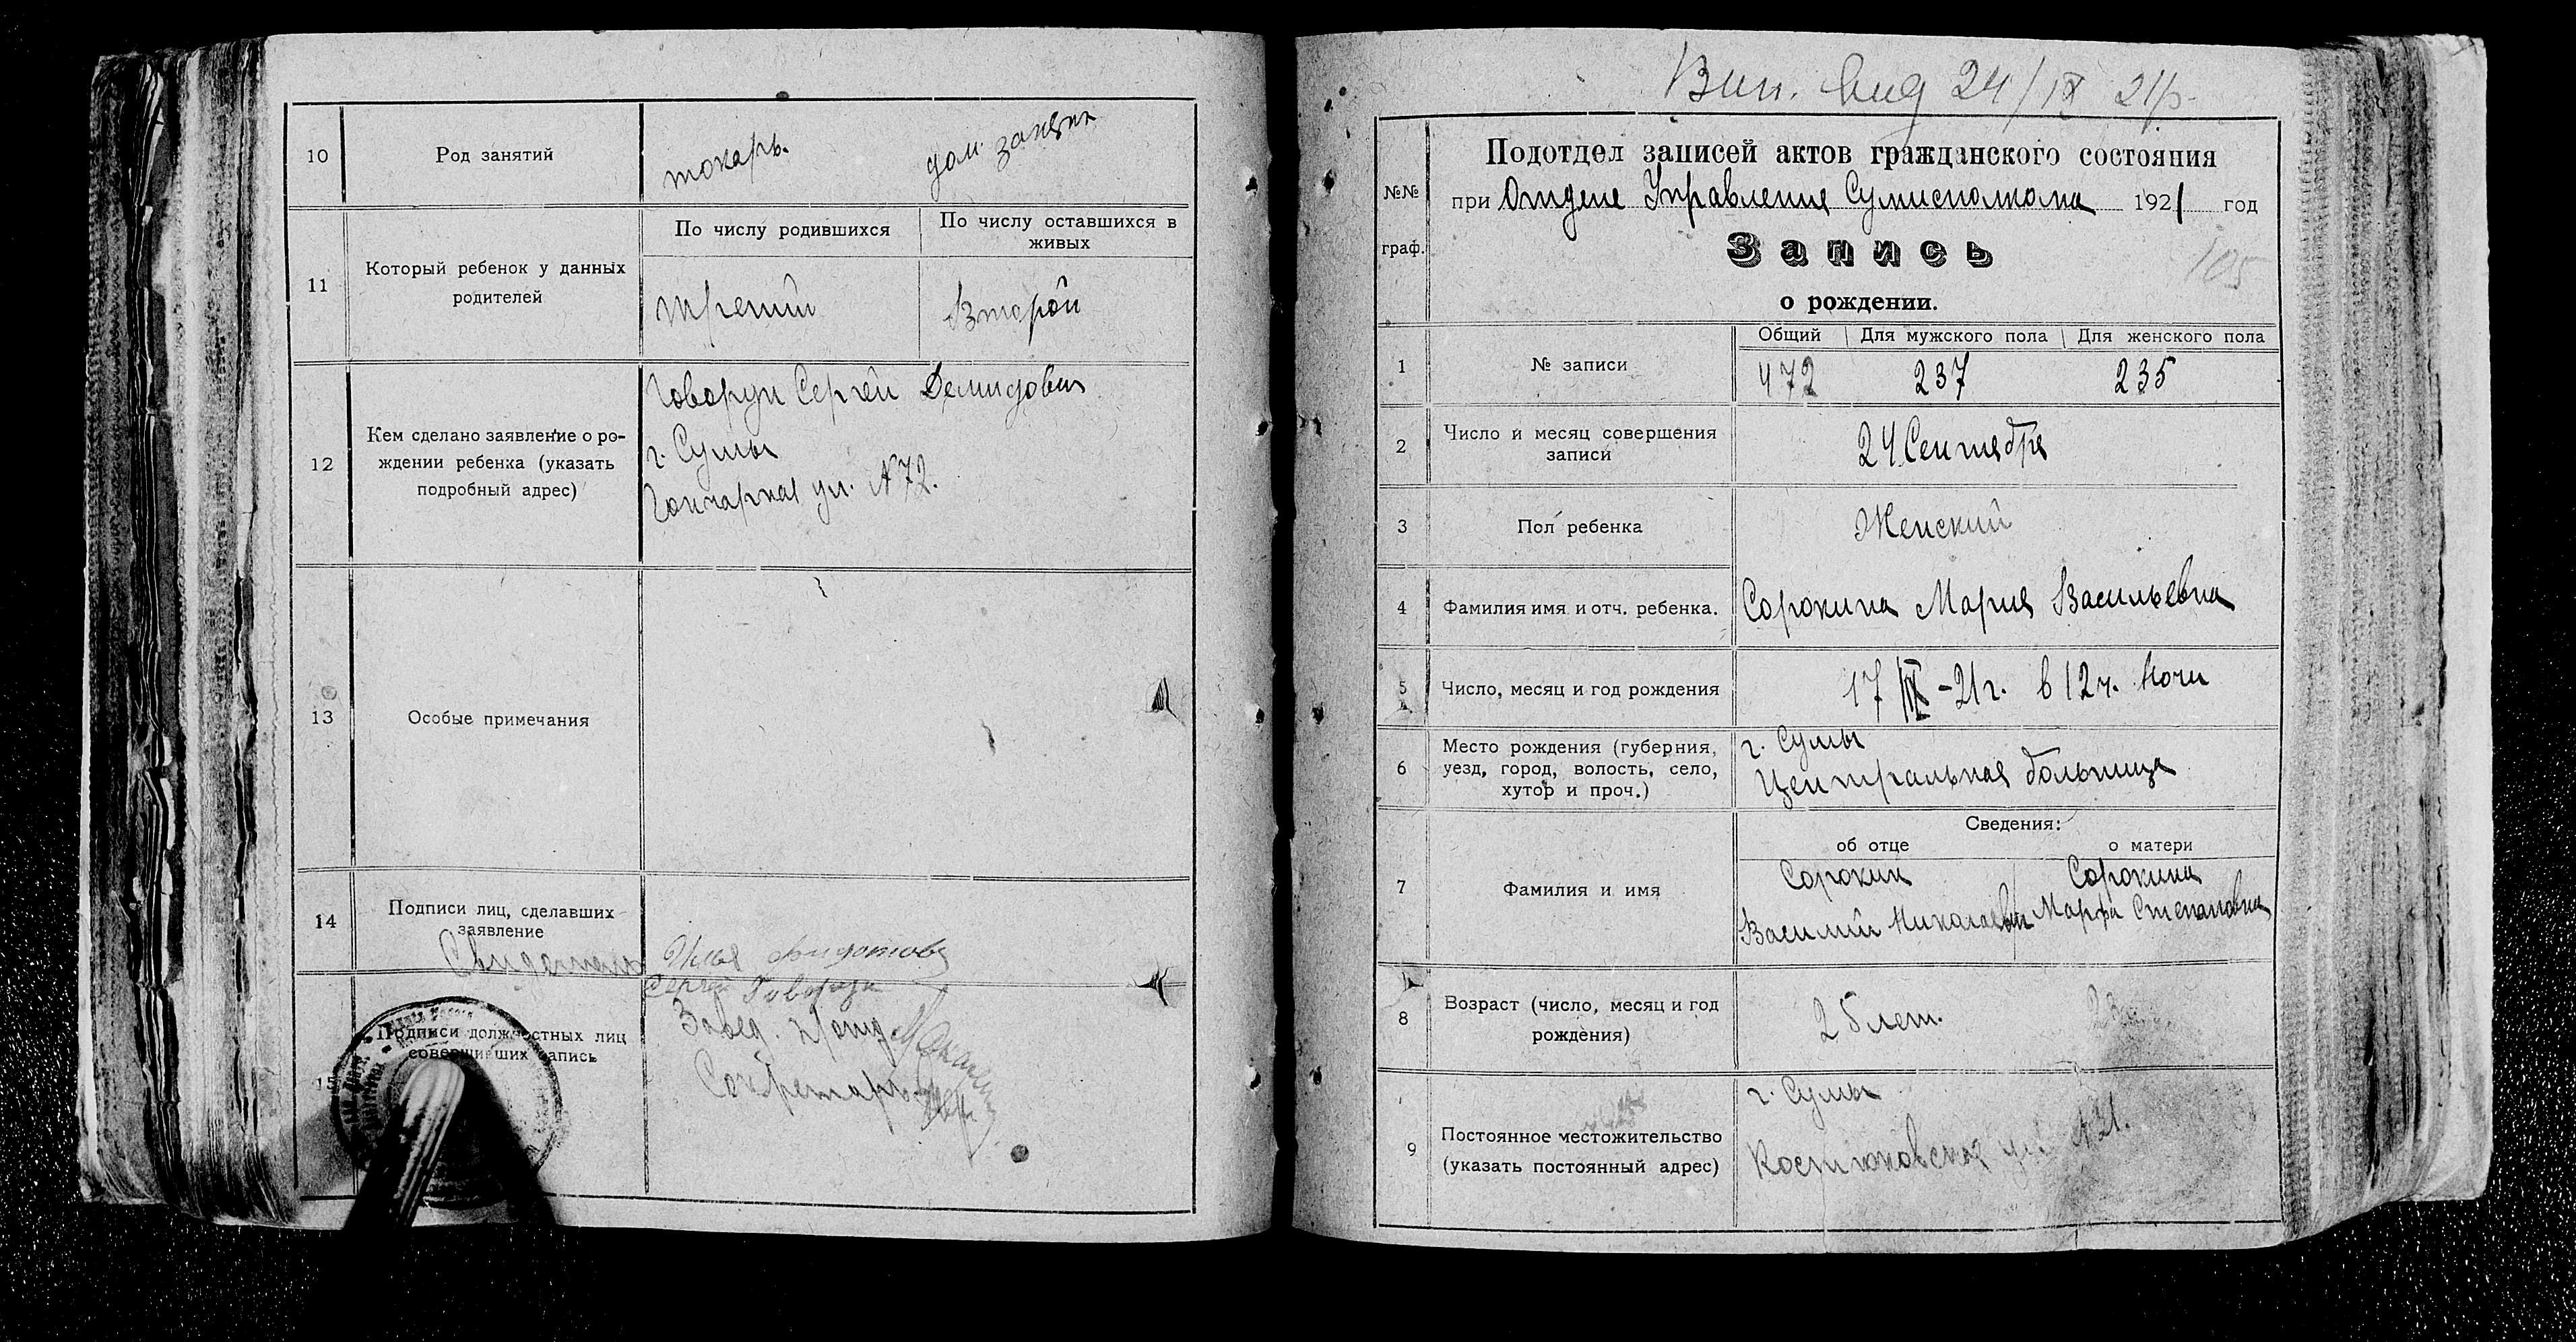 10
Род занятий
токарь.
дом. занят
11
Который ребенок у данных
родителей
По числу родившихся
По числу оставшихся в
живых
третий
Второй
12
Кем сделано заявление о ро-
ждении ребенка (указать
подробный адрес)
Говорун Сергей Демидович
г. Сумы
Гончарная ул. N 72.
13
Особые примечания
14
Подписи лиц, сделавших
заявление
Свидетели
Илья
Сергей Говорун
15
Подписи должностных лиц
совершивших запись
Завед.
Секретарь
Вип. вид 24/IX 21р.
№№
граф.
Подотдел записей актов гражданского состояния
при Отделе Управления Сумисполкома 1921 год
Запись
105
о рождении.
1
№ записи
Общий
Для мужского пола
Для женского пола
472
237
235
2
Число и месяц совершения
записи
24 Сентября
3
Пол ребенка
Женский
4
Фамилия имя и отч. ребенка.
Сорокина Мария Васильевна
5
Число, месяц и год рождения
17 IX - 21 г. в 12 ч. ночи
6
Место рождения (губерния,
уезд, город, волость, село,
хутор и проч.)
г. Сумы
Центральная больница
Сведения:
об отце
о матери
7
Фамилия и имя
Сорокин
Василий Николаевич
Сорокина
Марфа Степановна
8
Возраст (число, месяц и год
рождения)
25 лет.
9
Постоянное местожительство
(указать постоянный адрес)
г. Сумы
Костюковская ул. N 21.